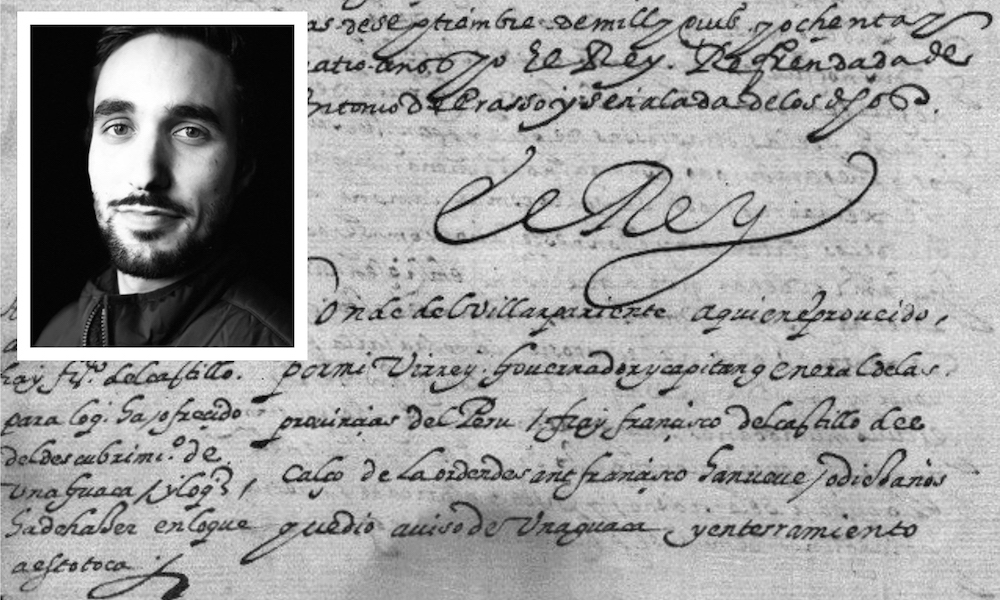 as de septiembre de mill y quis. y ochenta y
años yo el Rey. Refrendada de
Antonio de Erasso y señalada de los del
el Rey
Conde del Villar pariente a quien e proueido,
por mi Virrey. gouernador y capitan general de las
prouinçias del Peru fray françisco del castillo des
calço de la orden de sant françisco ha nueue o diez años
que dio auiso de Una guaca y enterramiento
fray fr.co del castillo.
para log. ha ofreçido
del descubrimi.o de
Una guaca y log
ha de haber en lo que
a esto toca